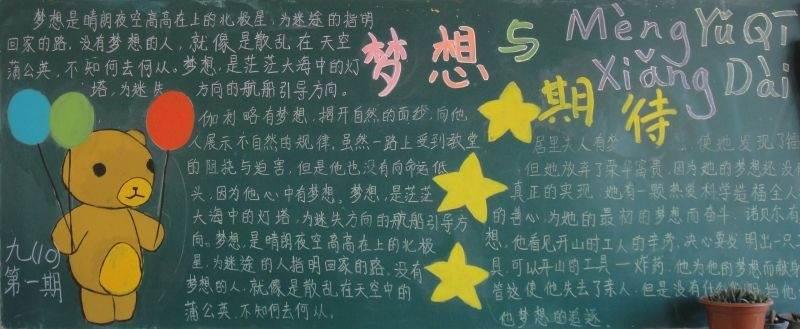 梦想是晴朗夜空高高在上的北极星,为迷途的指明
回家的路。没有梦想的人,就像是散乱在天空
蒲公英,不知何去何从。梦想,是茫茫大海中的灯
塔,为迷失 方向的航船引导方向。
梦想与期待
Mèng Xiǎng Yǔ Qī Dài
伽利略有梦想,揭开自然的面纱,向他
人展示不自然的规律。虽然一路上受到教堂
的阻挠与迫害,但是他也没有向命运低
头,因为他心中有梦想。梦想,是茫茫
大海中的灯塔,为迷失方向的航船引导方
向。梦想,是晴朗夜空高高在上的北极
星,为迷途的人指明回家的路。没有
梦想的人,就像是散乱在天空中的
蒲公英,不知何去何从。
居里夫人有 使她发现了
但她放弃了荣华富贵,因为她的梦想还没有
真正的实现,她有一颗热爱科学造福全人
的善心,为她的最初的梦想而奋斗。诺贝尔有
想,他看见开山时工人的辛劳,决心要发明出一
具,可以开山的工具一炸药。他为他的梦想而献身
管这使他失去了亲人,但是没有什么 挡他
他梦想的追逐。
九(10)
第一期